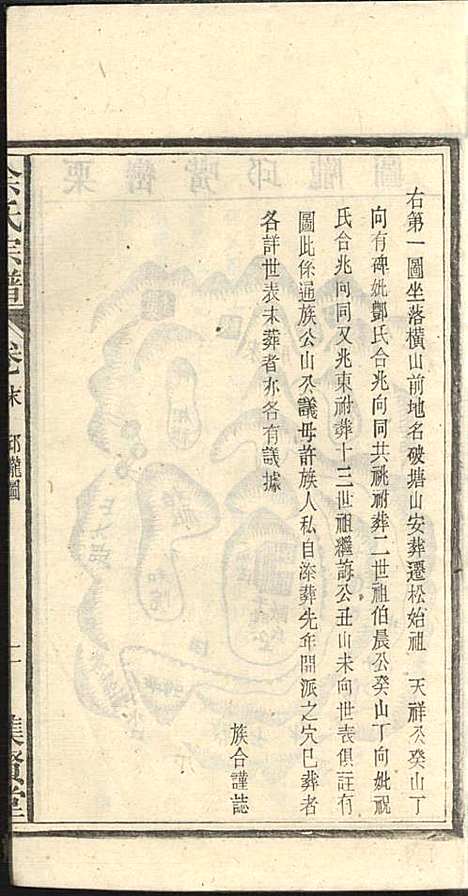 右第一圖坐落橫山前地名破塘山安葬遷松始祖 天祥公癸山丁
向有碑妣鄧氏合兆向同共祧祔葬二世祖伯晨公癸山丁向妣祝
氏合兆向同又兆東祔葬十三世祖繼誨公丑山未向世表俱註有
圖此係通族公山公議毋許族人私自添葬先年開派之穴巳葬者
各詳世表未葬者亦各有議據
族合謹誌
氏宗譜
卷末
邱隴圖
集賢堂
栗樹嘴邱隴圖